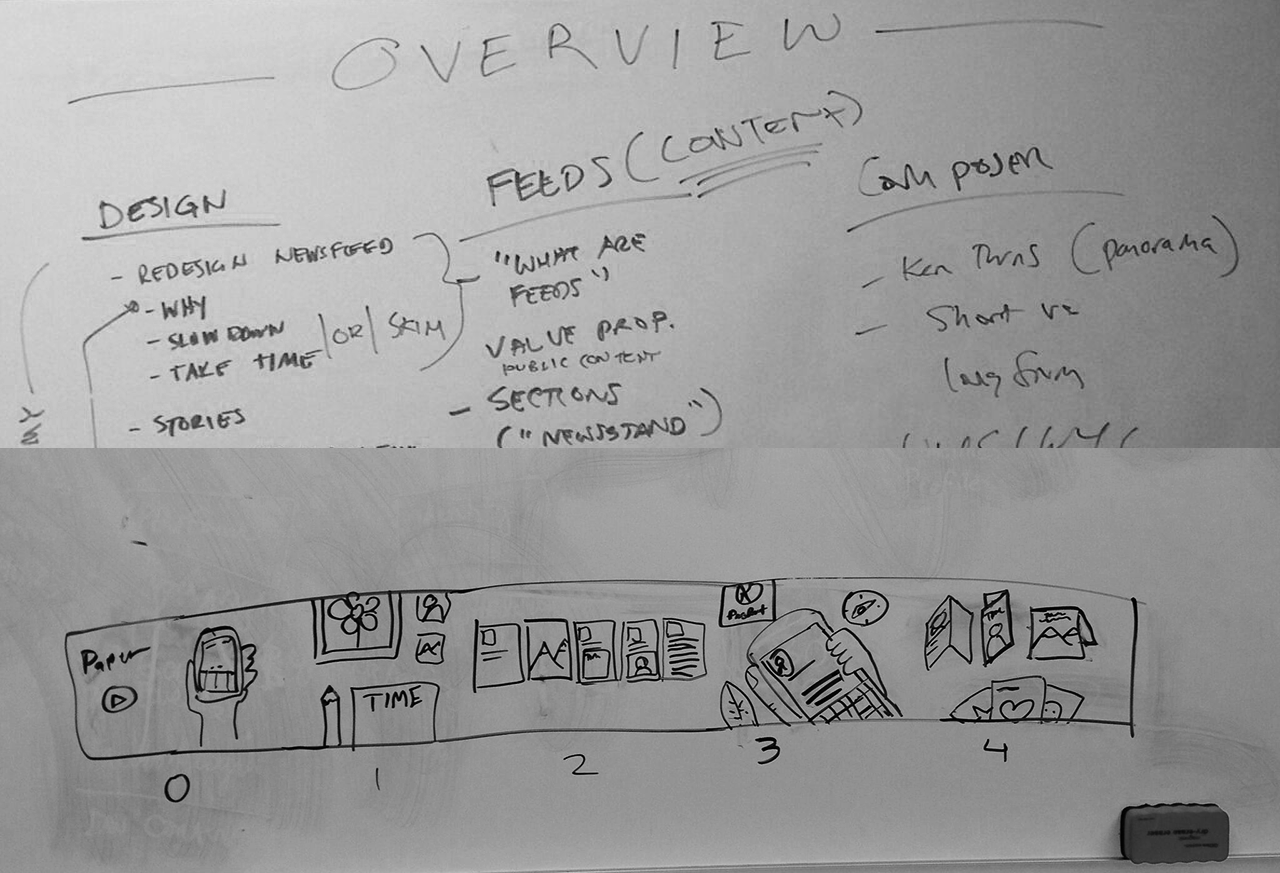 OVERVIEW
DESIGN
- REDESIGN NEWSFEED
- WHY
- SLOW DOWN
- TAKE TIME
/OR/ SKIM
- STORIES
FEEDS (CONTENT)
- "WHAT ARE
FEEDS"
VALUE PROP.
PUBLIC CONTENT
- SECTIONS
("NEWSSTAND")
Composer
- Ken Turns (panorama)
- Short vs
long form
Paper
TIME
0
1
2
3
4